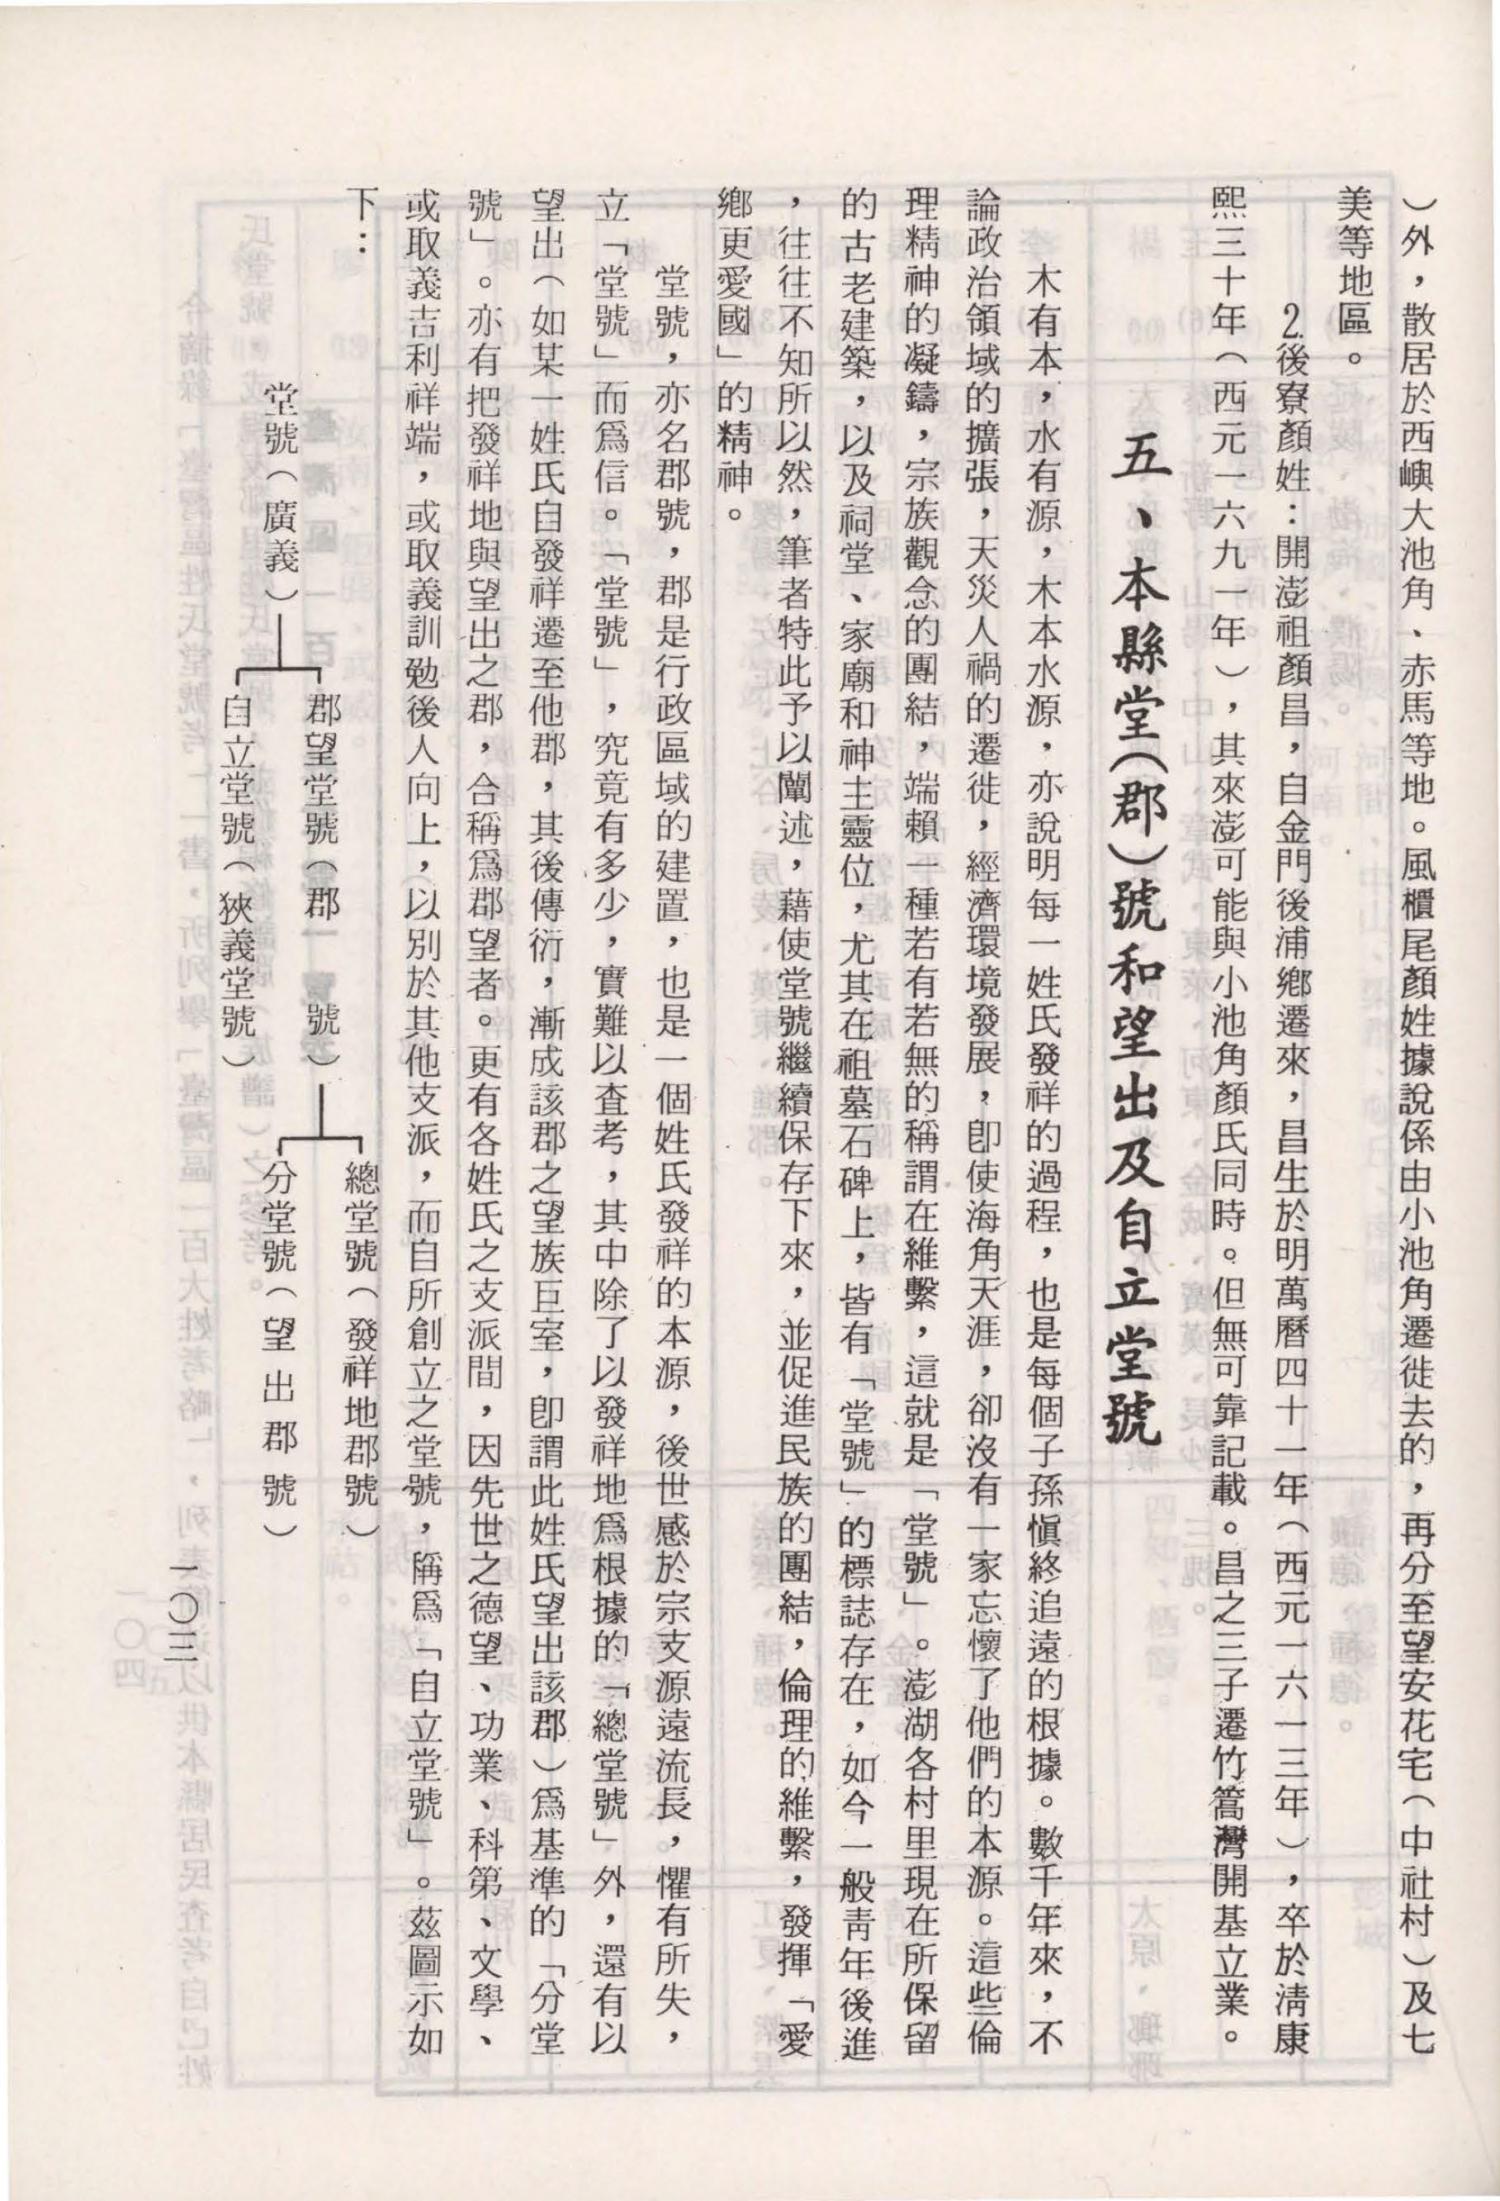 ）外，散居於西嶼大池角、赤馬等地。風櫃尾顏姓據說係由小池角遷徙去的，再分至望安花宅（中社村）及七
美等地區。
2.後寮顏姓：開澎祖顏昌，自金門後浦鄉遷來，昌生於明萬曆四十一年（西元一六一三年），卒於淸康
熙三十年（西元一六九一年），其來澎可能與小池角顏氏同時。但無可靠記載。昌之三子遷竹篙灣開基立業。
五、本縣堂（郡）號和望出及自立堂號
木有本，水有源，木本水源，亦說明每一姓氏發祥的過程，也是每個子孫愼終追遠的根據。數千年來，不
論政治領域的擴張，天災人禍的遷徙，經濟環境發展，卽使海角天涯，卻沒有一家忘懷了他們的本源。這些倫
理精神的凝鑄，宗族觀念的團結，端賴一種若有若無的稱謂在維繫，這就是「堂號」。澎湖各村里現在所保留
的古老建築，以及祠堂、家廟和神主靈位，尤其在祖墓石碑上，皆有「堂號」的標誌存在，如今一般靑年後進
，往往不知所以然，筆者特此予以闡述，藉使堂號繼續保存下來，並促進民族的團結，倫理的維繫，發揮「愛
鄕更愛國」的精神。
堂號，亦名郡號，郡是行政區域的建置，也是一個姓氏發祥的本源，後世感於宗支源遠流長，懼有所失，
立「堂號」而爲信。「堂號」，究竟有多少，實難以査考，其中除了以發祥地爲根據的「總堂號」外，還有以
望出（如某一姓氏自發祥遷至他郡，其後傳衍，漸成該郡之望族巨室，卽謂此姓氏望出該郡）爲基準的「分堂
號」。亦有把發祥地與望出之郡，合稱爲郡望者。更有各姓氏之支派間，因先世之德望、功業、科第、文學、
或取義吉利祥端，或取義訓勉後人向上，以別於其他支派，而自所創立之堂號，稱爲「自立堂號」。茲圖示如
下：
堂號（廣義）
郡望堂號（郡　號）
總堂號（發祥地郡號）
分堂號（望出郡號）
自立堂號（狹義堂號）
一〇三